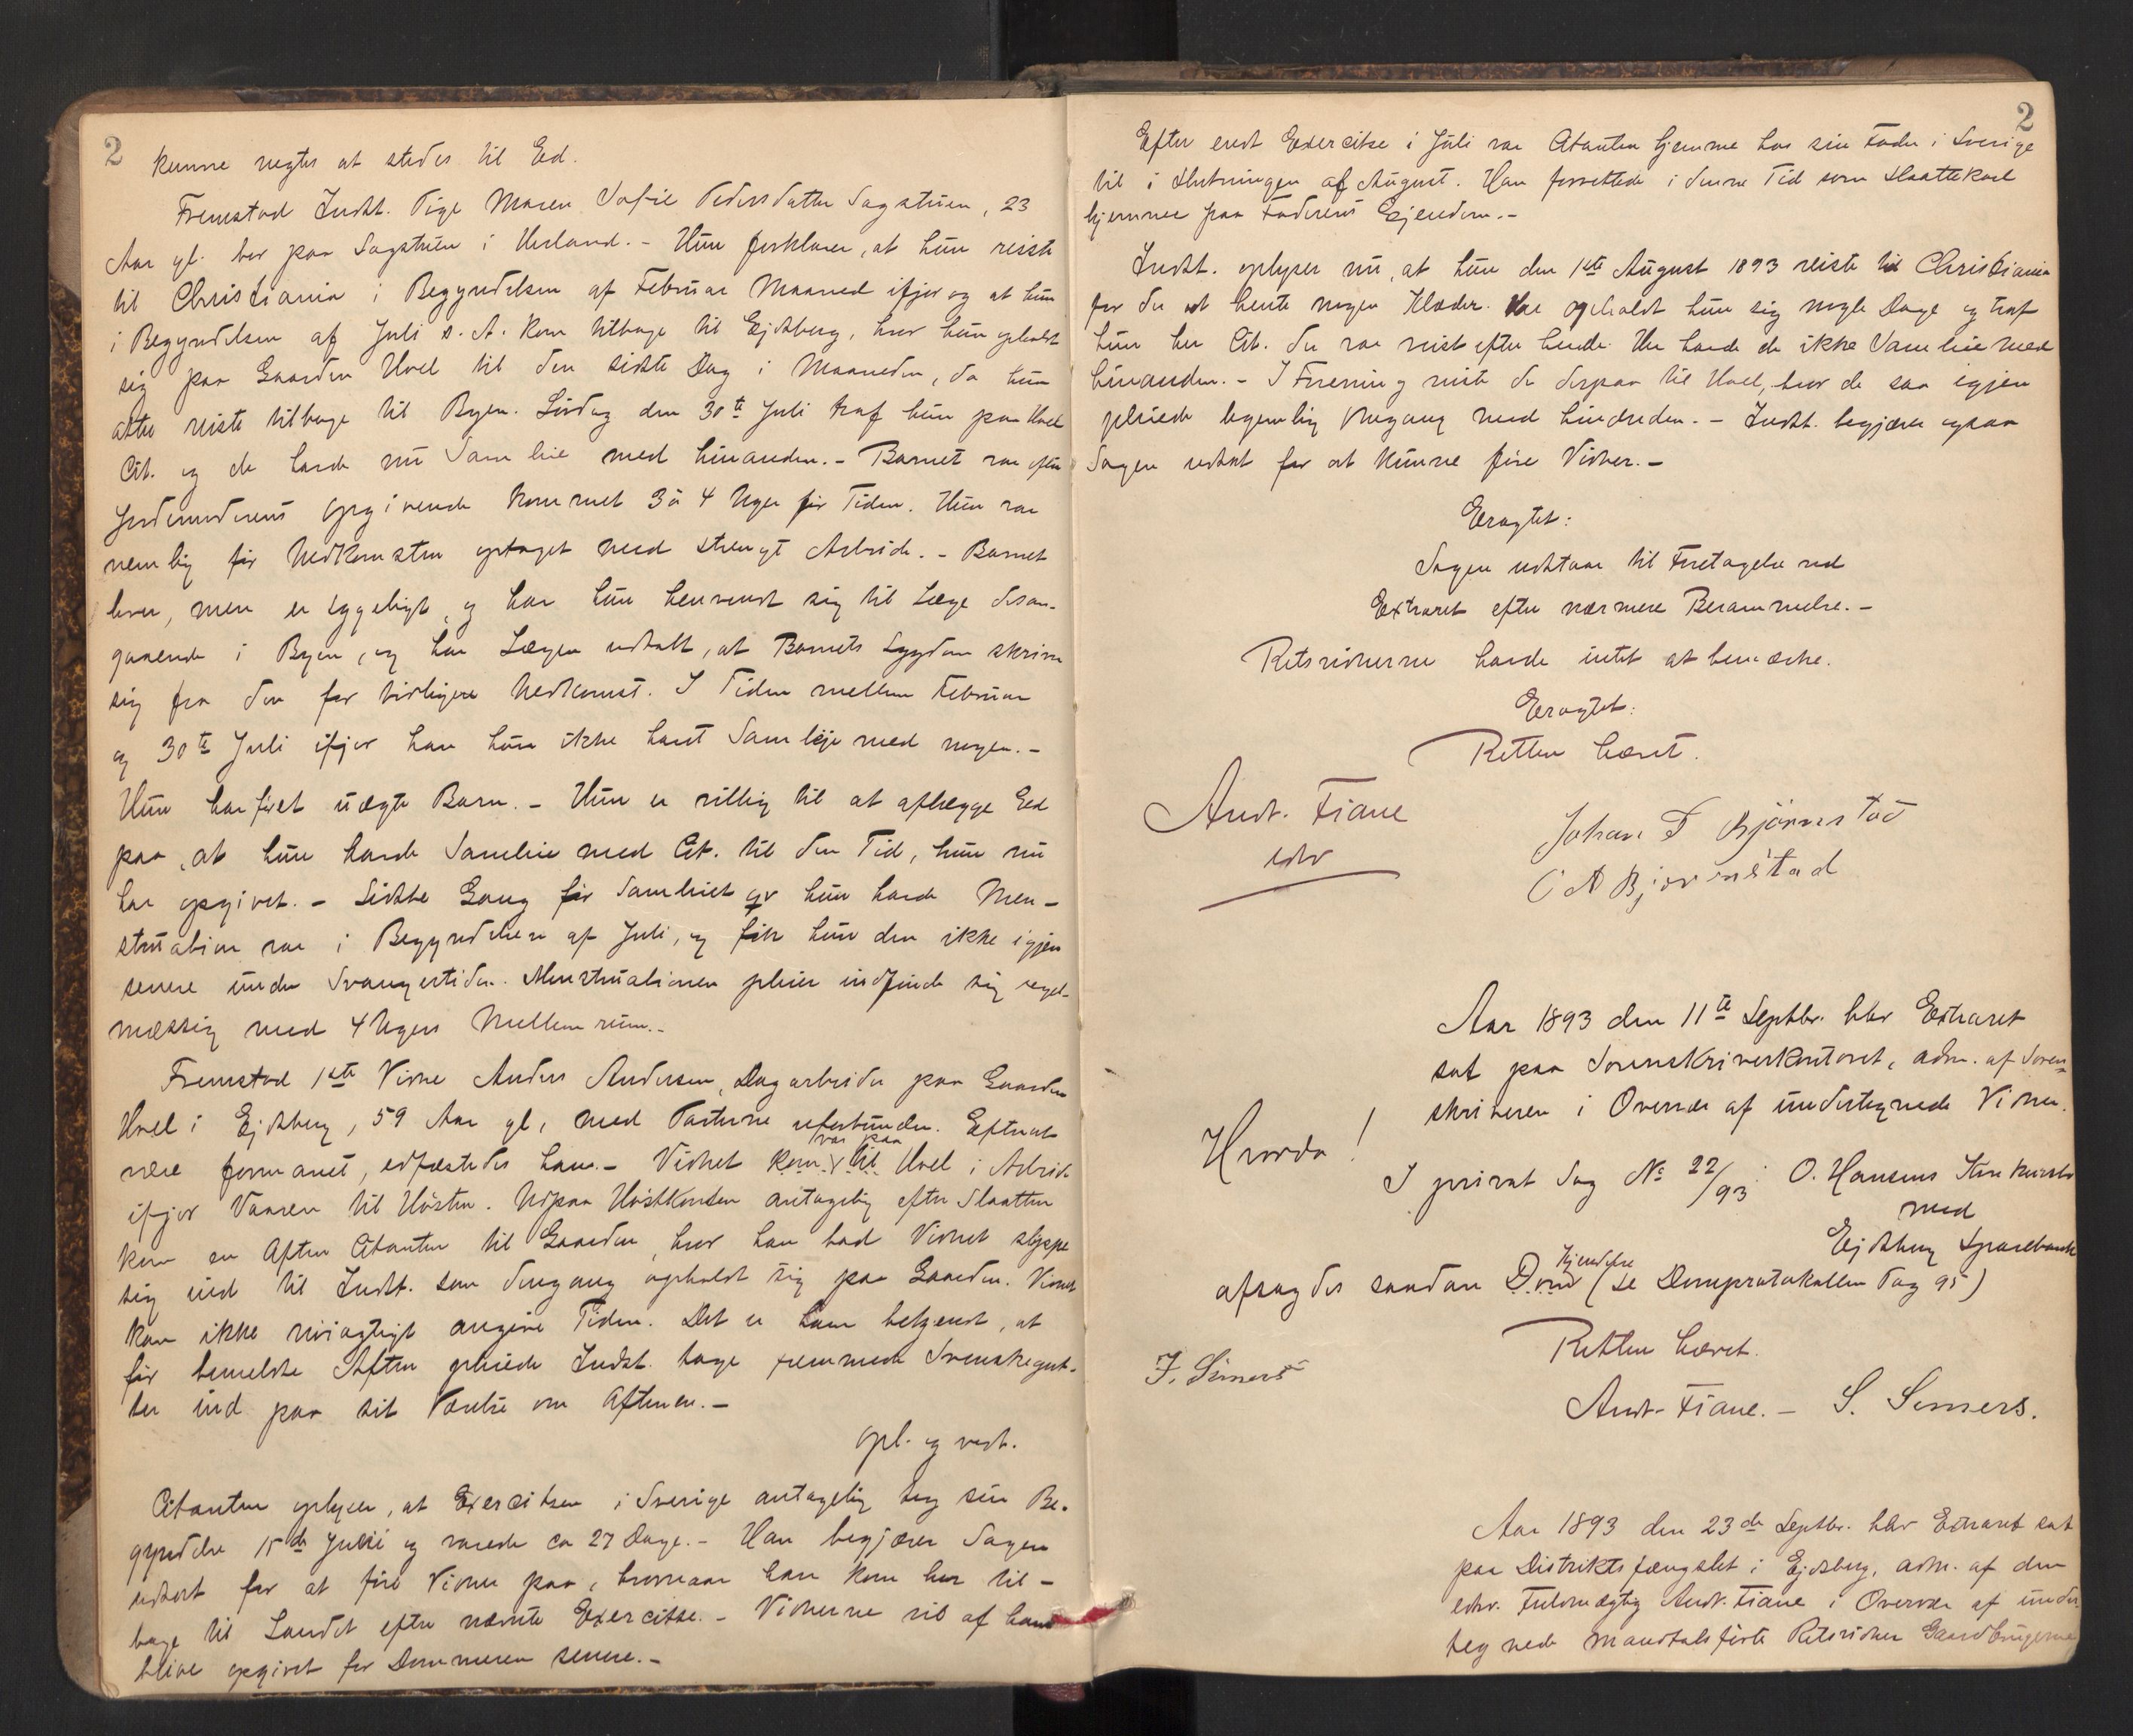 2
kunne negtes at stedes til Ed.
Fremstod Indst. Pige Maren Sofie Pedersdatter Sagstuen, 23
Aar gl. bor paa Sagstuen i Urland. - Hun forklarer, at hun reiste
til Christiania i Begyndelsen af Februar Maaned ifjor og at hun
i Begyndelsen af Juli s. A. kom tilbage til Ejdsberg, hvor hun opholdt
sig paa Gaarden Hvel til den sidste Dag i Maaneden, da hun
atter reiste tilbage til Byen. Lördag den 30te Juli traf hun paa Hvel
Cit. og de havde nu Samleie med hinanden. - Barnet var efter
Jordemoderens Opgivende kommet 3 à 4 Uger för Tiden. Hun var
nemlig för Nedkomsten optaget med strengt Arbeide. - Barnet
lever, men er sygeligt, og har hun henvendt sig til Læge desan-
gaaende i Byen, og har Lægen udtalt, at Barnets Sygdom skriver
sig fra den for tidligere Nedkomst. I Tiden mellem Februar
og 30te Juli ifjor har hun ikke havt Samleje med nogen. -
Hun har födt uægte Barn. - Hun er villig til at aflægge Ed
paa, at hun havde Samleie med Cit. til den Tid, hun nu
har opgivet. - Sidste Gang för Samleiet hun havde Men-
struation var i Begyndelsen af Juli, og fik hun den ikke igjen
senere under Svangertiden. Menstruationen pleier indfinde sig regel-
mæssig med 4 Ugers Mellemrum. -
Fremstod 1ste Vidne Anders Andersen, Dagarbeider paa Gaarden
Hvel i Ejdsberg, 59 Aar gl, med Parterne uforbunden. Efter at
være formanet, edfæstedes han. - Vidnet kom til var paa Hvel i Arbeide
ifjor Vaaren til Hösten. Udpaa Höstkanten antagelig efter Slaatten
kom en Aften Citanten til Gaarden, hvor han bad Vidnet slippe
sig ind til Indst. som dengang opholdt sig paa Gaarden. Vidnet
kan ikke nöiagtigt angive Tiden. Det er ham bekjendt, at
för bemeldte Aften pleiede Indst. tage fremmede Svenskegut-
ter ind paa sit Værelse om Aftenen. -
Opl. og vedt.
Citanten oplyser, at Exercitsen i Sverige antagelig tog sin Be-
gyndelse 15de Juli og varede ca 27 Dage. - Han begjærer Sagen
udsat for at före Vidner paa, hvornaar han kom her til-
bage til Landet efter nævnte Exercitse. - Vidnerne vil af ham
blive opgivet for Dommeren senere. -
2
Efter endt Exercitse i Juli var Citanten hjemme hos sin Fader i Sverige
til i Slutningen af August. Han forrettede i denne Tid som Slaattekarl
hjemme paa Faderens Ejendom. -
Indst. oplyser nu, at hun den 1ste August 1893 reiste til Christiania
for der at hente nogen Klæder. Her opholdt hun sig nogle Dage og traf
hun her Cit. der var reist efter hende. Her havde de ikke Samleie med
hinanden. - I Forening reiste de derpaa til Hvel, hvor de saa igjen
pleiede legemlig Omgang med hinanden. - Indst. begjærer ogsaa
Sagen udsat for at kunne före Vidner. -
Eragtet:
Sagen udstaar til Foretagelse ved
Extraret efter nærmere Berammelse. -
Retsvidnerne havde intet at bemærke.
Eragtet:
Retten hævet.
Andr. Fiane
edsv
Johan T Björnstad
C A Bjornstad
Aar 1893 den 11te Septbr. blev Extraret
sat paa Sorenskriverkontoret, adm. af Soren-
skriveren i Overvær af undertegnede Vidner.
Hvorda!
I privat Sag No 22/93: O. Hansens Konkursbo
med
Ejdsberg Sparebank
afsagdes saadan Dom Kjendelse (se Domprotokollen Pag 95)
Retten hævet.
F. Simers
Andr. Fiane. - S. Simers.
Aar 1893 den 23de Septbr. blev Extraret sat
paa Distriktsfængslet i Ejdsberg, adm. af den
edsv. Fuldmægtig Andr. Fiane i Overvær af under-
tegnede mandtalsförte Retsvidner Gaardbrugerne